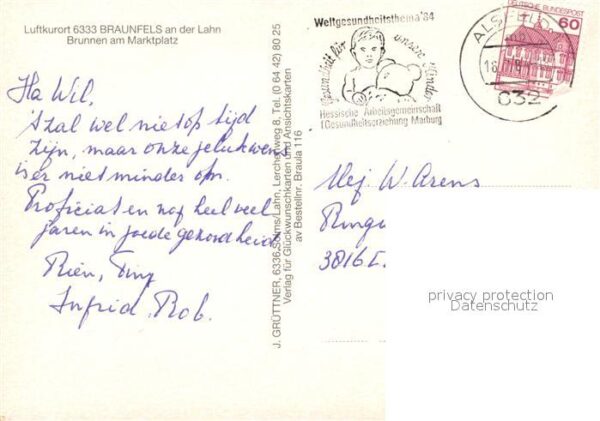 Luftkurort 6333 BRAUNFELS an der Lahn
Brunnen am Marktplatz
Ha Wil,
't Zal wel niet op tijd
zijn, maar onze gelukwens
is er niet minder om.
Proficiat en nog heel veel
jaren in goede gezondheid
Rien, Tiny
Ingrid Rob.
J. GRÜTTNER, 6336 Solms/Lahn, Lercherweg 8, Tel. (0 64 42) 80 25
Verlag für Glückwunschkarten und Ansichtskarten
av Bestellnr. Braula 116
Weltgesundheitsthema '84
Gesundheit für unsere Kinder
Hessische Arbeitsgemeinschaft
f Gesundheitserziehung Marburg
832
DEUTSCHE BUNDESPOST
60
Mej. W. Arens
3816 E.
privacy protection
Datenschutz